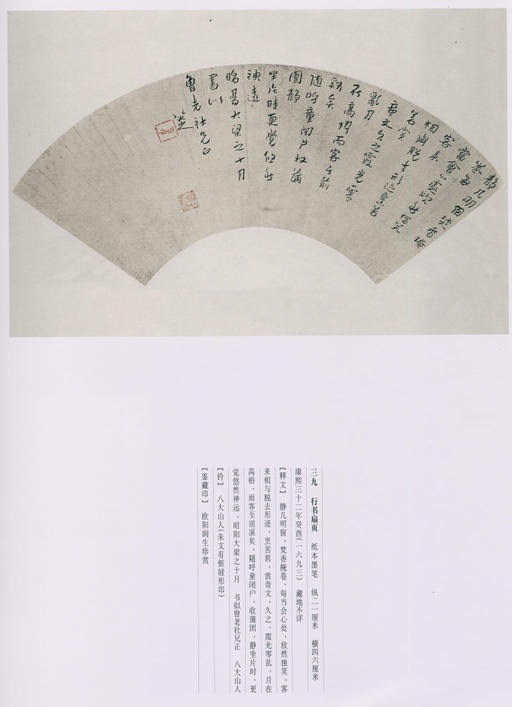 静几明窗焚香掩
卷每
当会心处欣然独笑
客来
相与脱去形迹烹苦
茗赏
奇文久之霞光零
乱月
在高梧而客至前
溪矣
随呼童闭户收蒲
團静
坐片时更覺悠然
神遠
昭陽大梁之十月
書似
曾老社兄正
八大山人
三九 行书扇页 纸本墨笔 纵二一厘米 横四六厘米
康熙三十二年癸酉(一六九三) 藏地不详
【释文】 静几明窗,焚香掩卷,每当会心处,欣然独笑,客
来相与脱去形迹,烹苦茗,赏奇文,久之,霞光零乱,月在
高梧,而客至前溪矣,随呼童闭户,收蒲团,静坐片时,更
觉悠然神远。昭阳大梁之十月 书似曾老社兄正 八大山人
【钤】 八大山人(朱文有框屐形印)
【鉴藏印】 欧阳润生珍赏